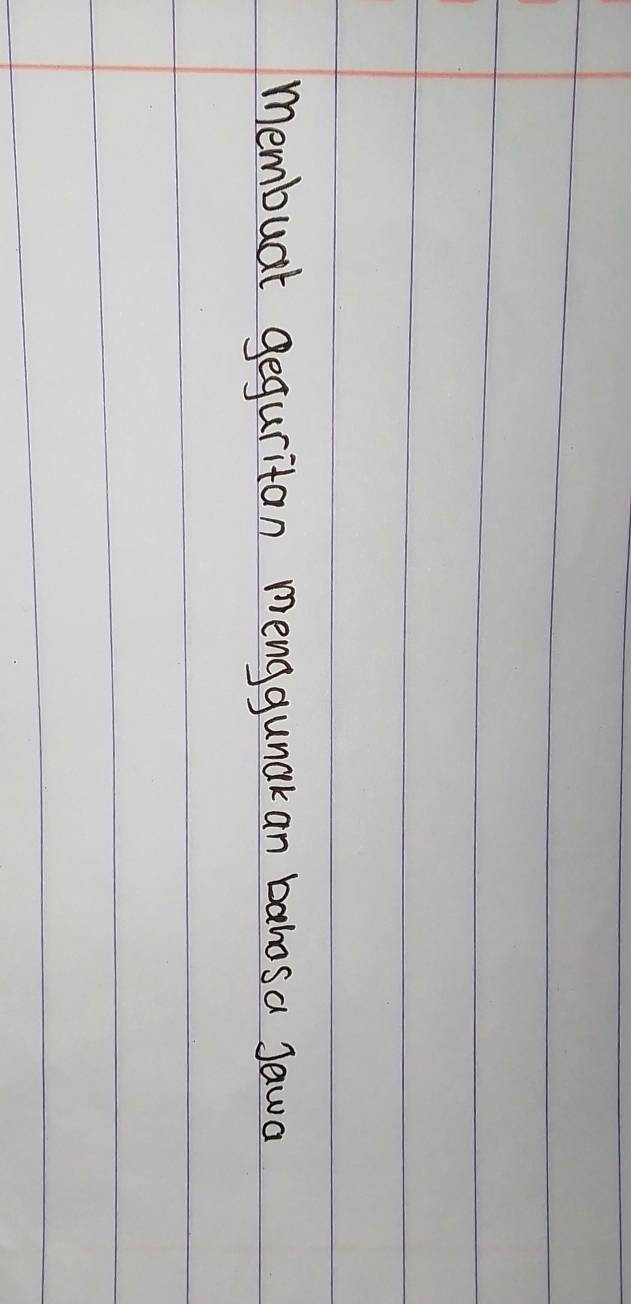 Membuat geguritan menggunakan bahasa Jawa